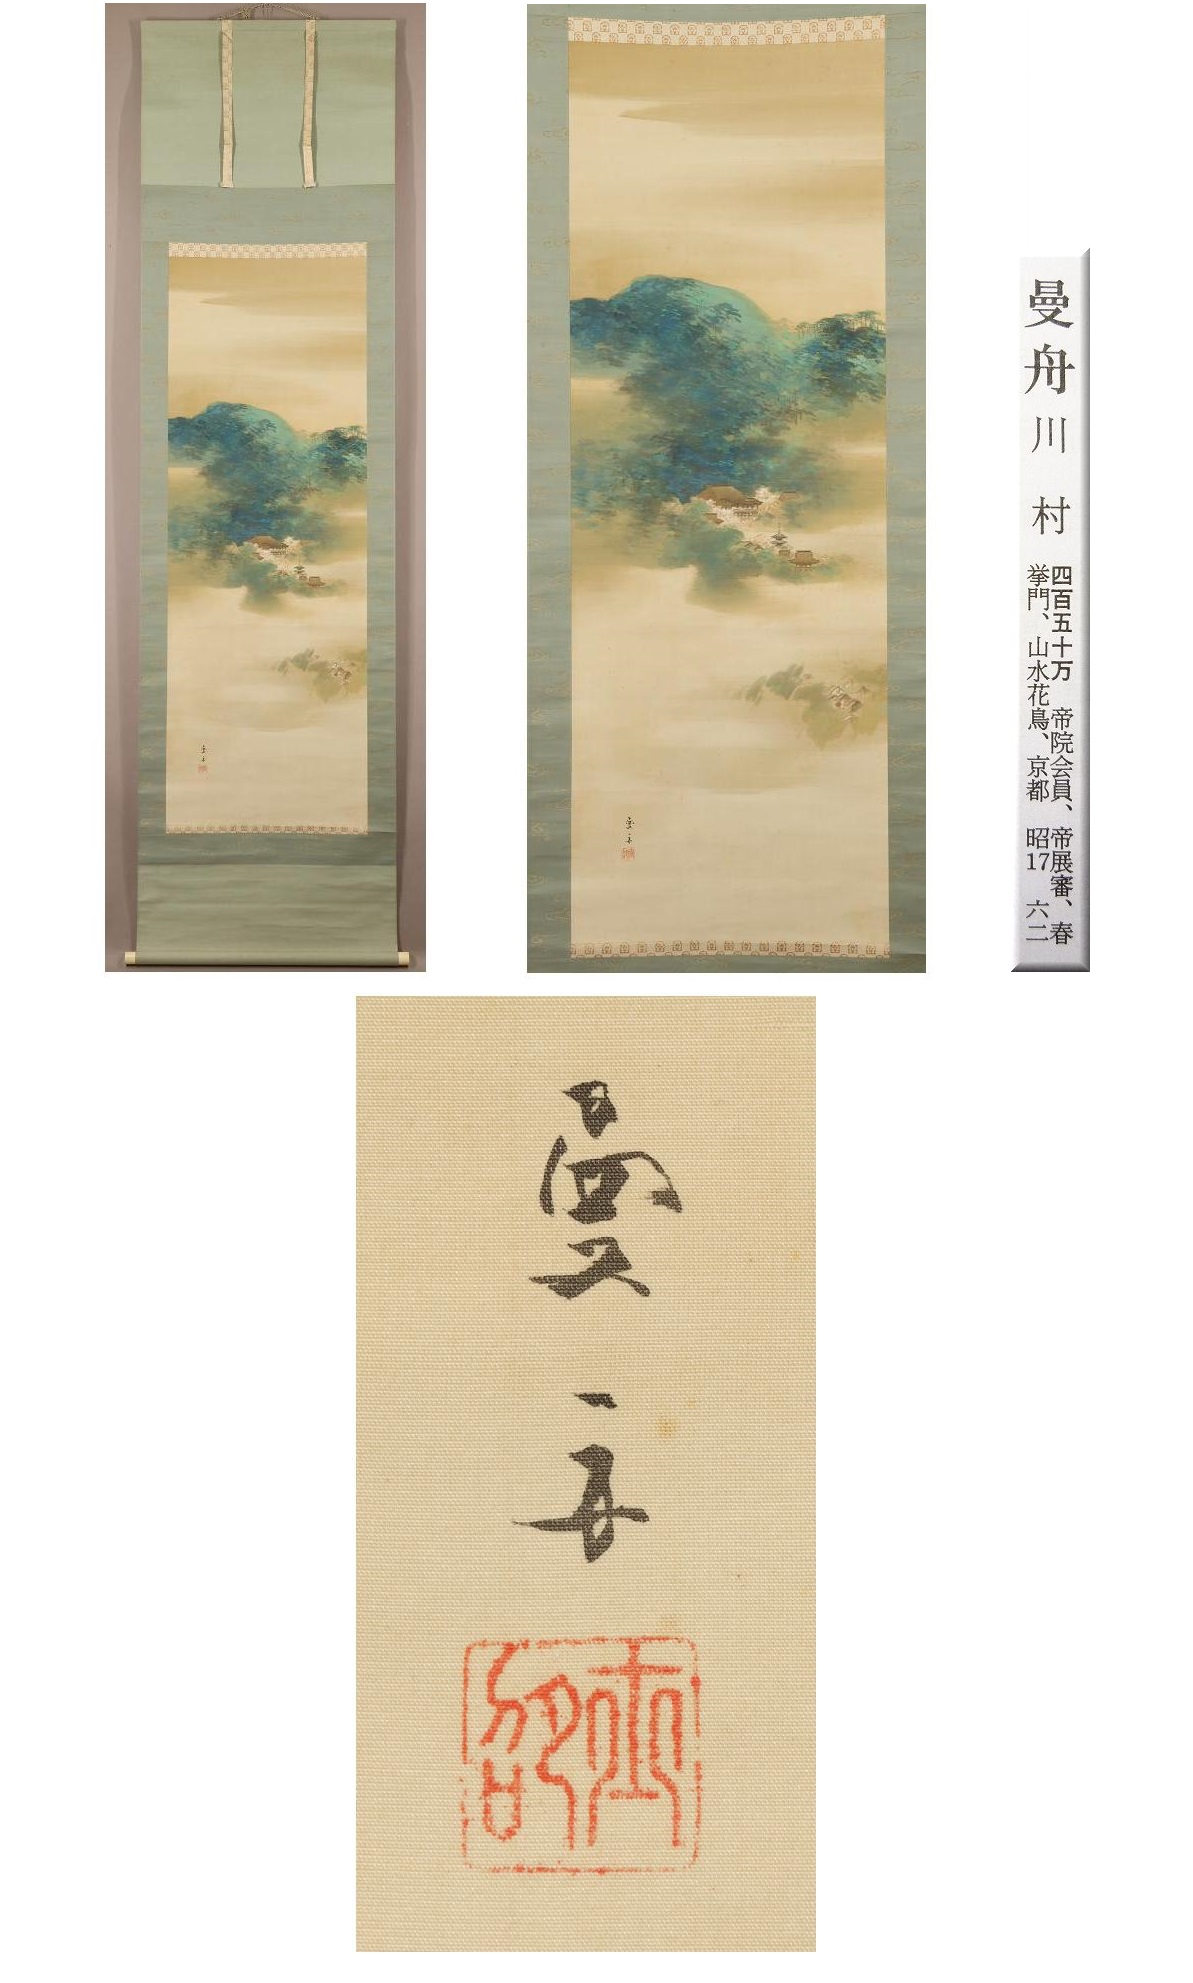 曼舟 川村
四百五十万 帝院会員、帝展審、春
挙門、山水花鳥、京都 昭17 六二
曼舟